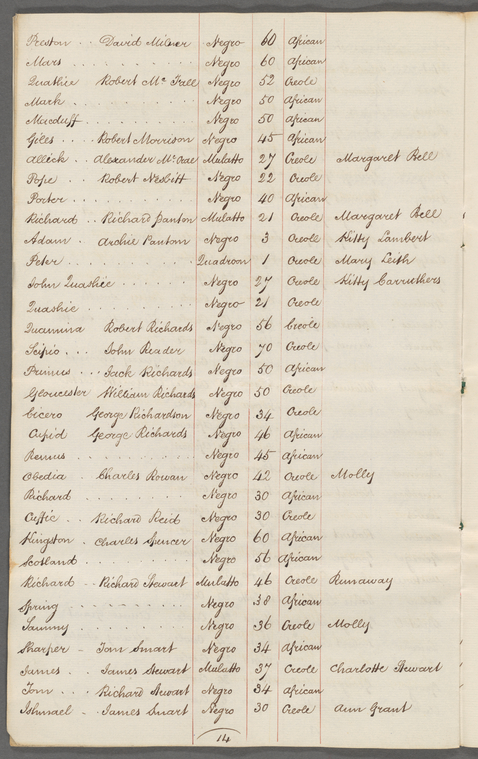 Preston . . David Milner Negro 60 African
Mars . . . . . . . . . . Negro 60 African
Quashie Robert Mc Fall Negro 52 Creole
Mark . . . . . . . . . . Negro 50 African
Macduff . . . . . . . . . Negro 50 African
Giles . . . Robert Morrison Negro 45 African
Alleck . . Alexander McCrae Mulatto 27 Creole Margaret Bell
Pope . . Robert Nesbitt Negro 22 Creole
Porter . . . . . . . . . . Negro 40 African
Richard . . Richard Panton Mulatto 21 Creole Margaret Bell
Adam . Archie Pantom Negro 3 Creole Kitty Lambert
Peter . . . . . . . . . . Quadroon 1 Creole Mary Leith
John Quashie . . . . . . Negro 27 Creole Kitty Carruthers
Quashie . . . . . . . . . Negro 21 Creole
Quamina Robert Richards Negro 56 Creole
Scipio . . . John Reader Negro 70 Creole
Primus . . . Jack Richards Negro 50 African
Gloucester William Richards Negro 50 Creole
Cicero George Richardson Negro 34 Creole
Cupid George Richards Negro 46 African
Remus . . . . . . . . . . Negro 45 African
Obedia . Charles Rowan Negro 42 Creole Molly
Richard . . . . . . . . . Negro 30 African
Cuffie . . Richard Reid Negro 30 Creole
Kingston . Charles Spencer Negro 60 African
Scotland . . . . . . . . . Negro 56 African
Richard - - Richard Stewart Mulatto 46 Creole Runaway
Spring - - - - - - - - - Negro 38 African
Sammy - - - - - - - - - Negro 36 Creole Molly
Sharper - Tom Smart Negro 34 African
James . . James Stewart Mulatto 37 Creole Charlotte Stewart
Tom . . . Richard Stewart Negro 34 African
Ishmael - . James Smart Negro 30 Creole Ann Grant
14